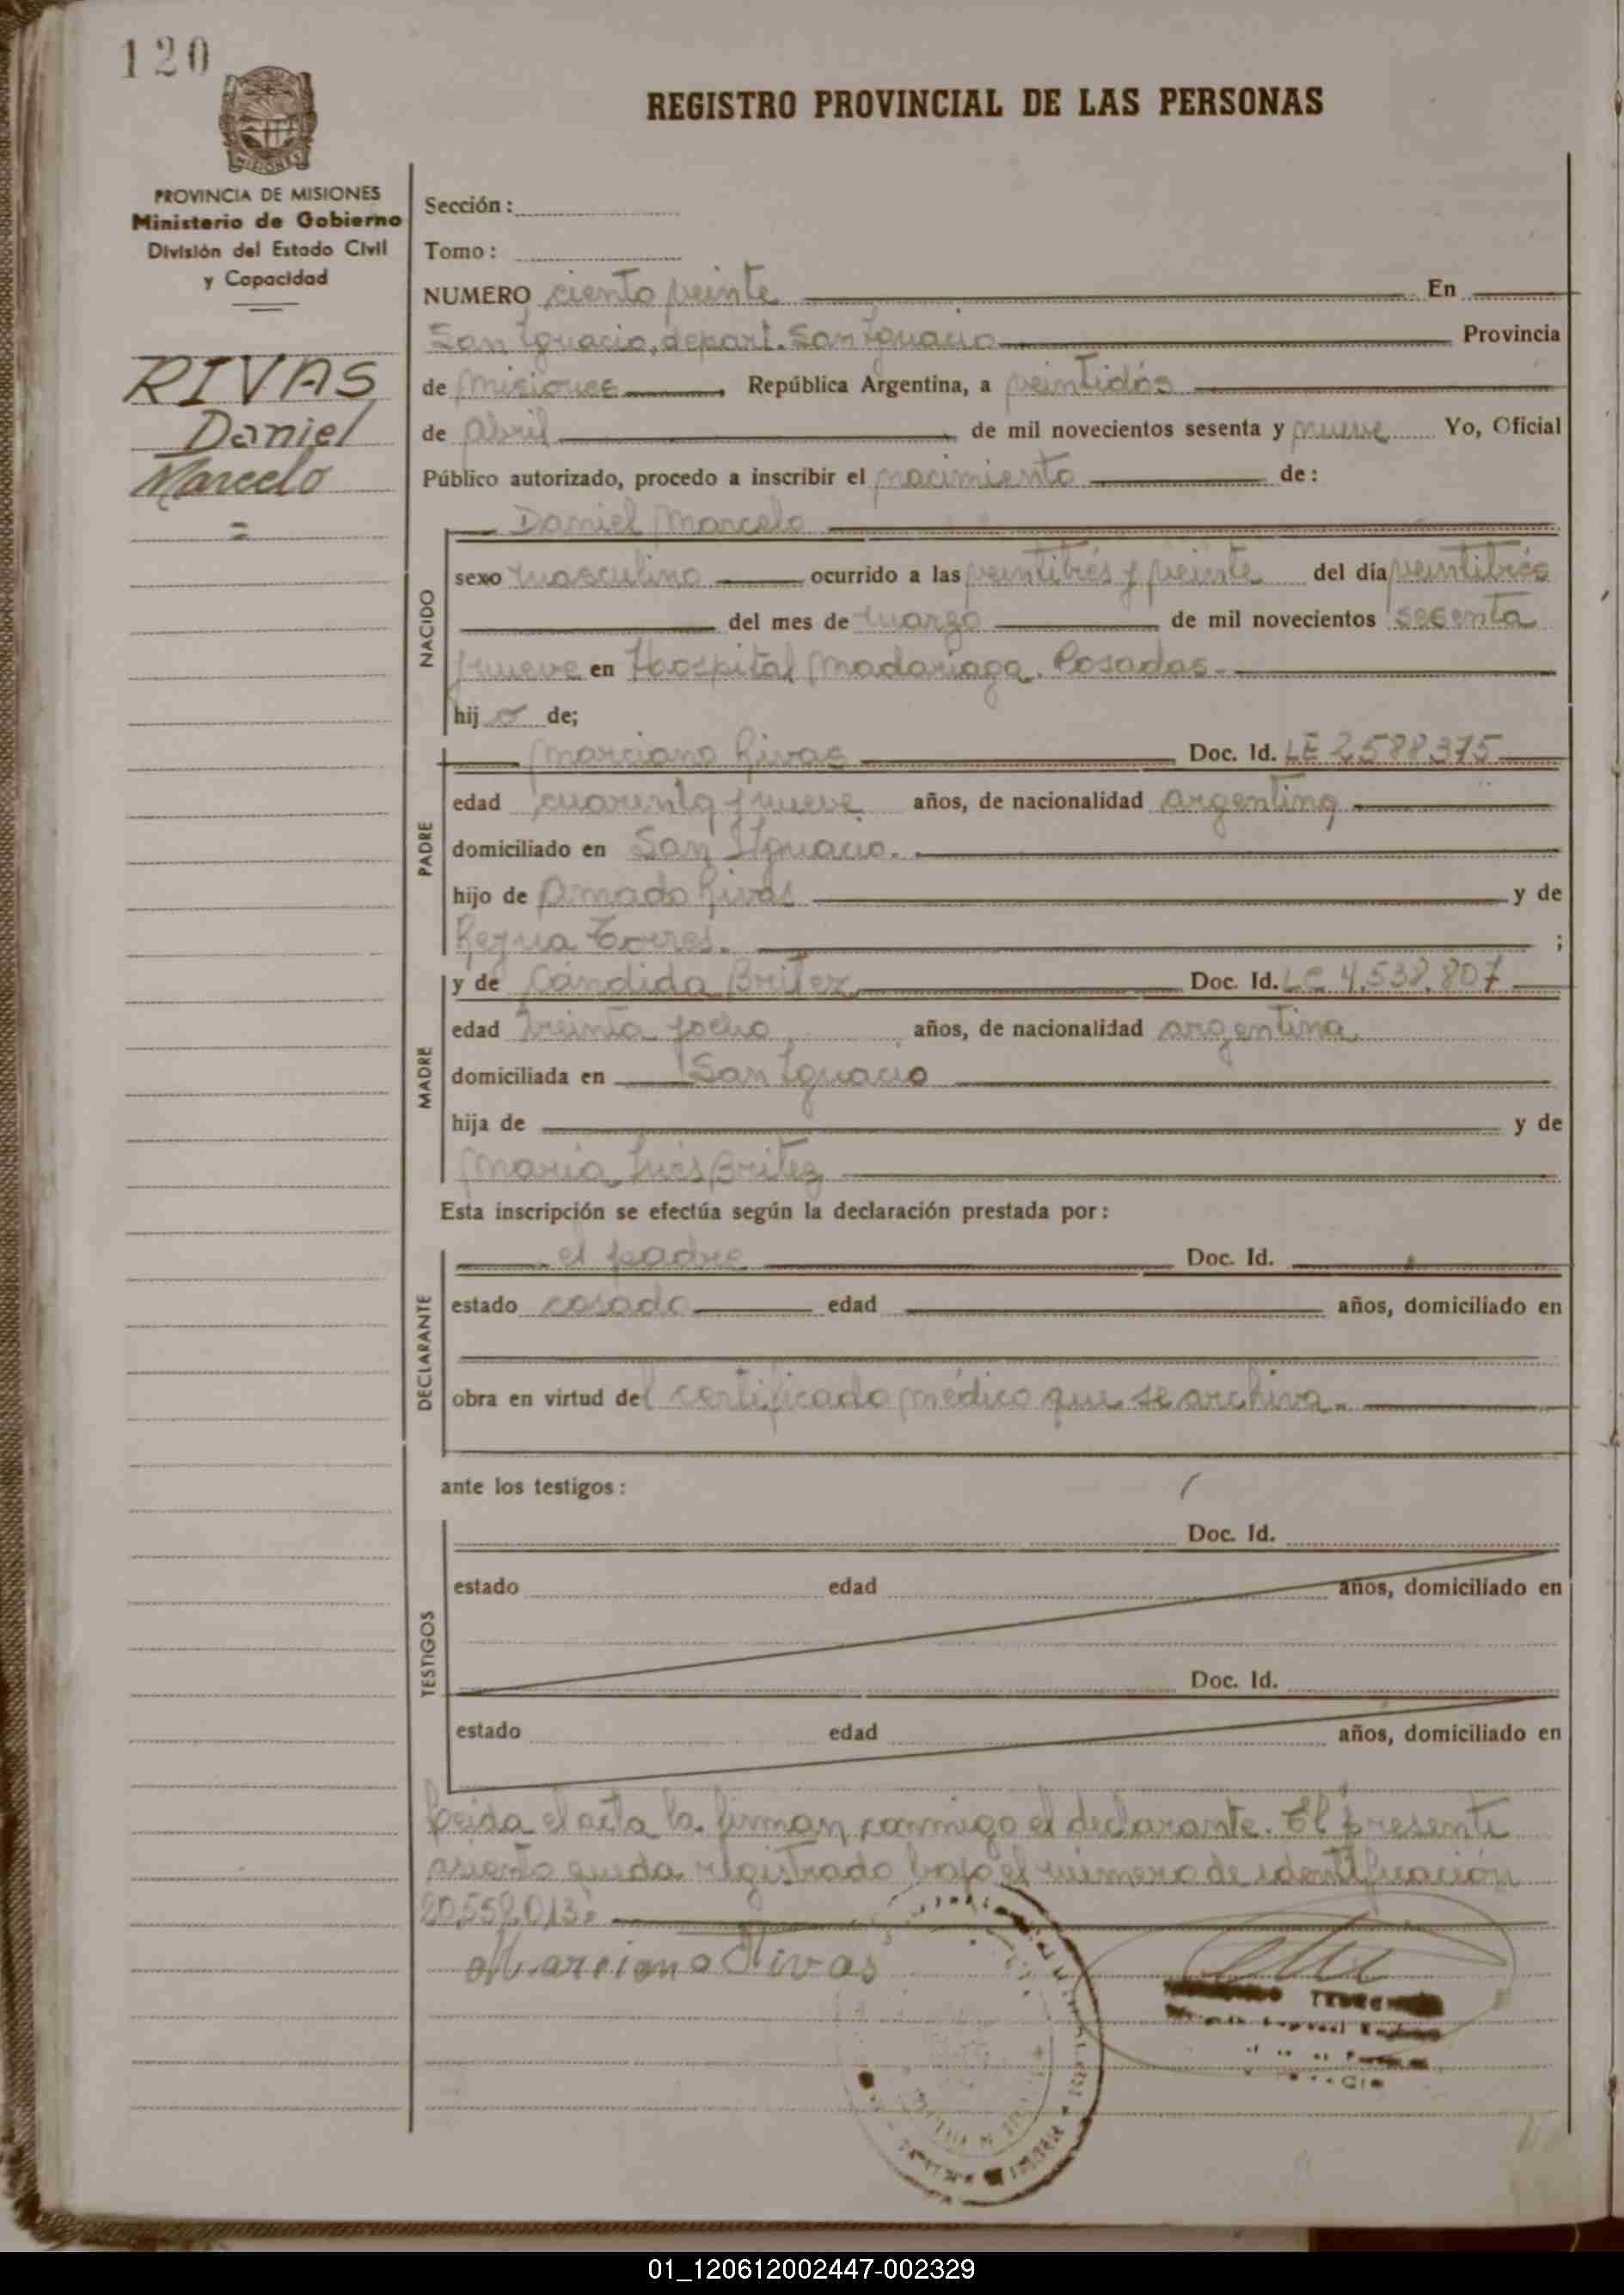 120
MISIONES
PROVINCIA DE MISIONES
Ministerio de Gobierno
División del Estado Civil
y Capacidad
RIVAS
Daniel
Marcelo
=
REGISTRO PROVINCIAL DE LAS PERSONAS
Sección:
Tomo:
NUMERO ciento veinte En
San Ignacio, depart. San Ignacio Provincia
de Misiones República Argentina, a veintidós
de Abril de mil novecientos sesenta y nueve Yo, Oficial
Público autorizado, procedo a inscribir el nacimiento de:
NACIDO
Daniel Marcelo
sexo masculino ocurrido a las veintitrés y veinte del día veintitrés
del mes de marzo de mil novecientos sesenta
y nueve en Hospital Madariaga. Posadas.
hijo de;
PADRE
Marciano Rivas Doc. Id. LE 2588375
edad cuarenta y nueve años, de nacionalidad argentina
domiciliado en San Ignacio.
hijo de Amado Rivas y de
Regua Torres. ;
MADRE
y de Cándida Britez Doc. Id. LC 4.538.807
edad treinta y ocho años, de nacionalidad argentina
domiciliada en San Ignacio
hija de y de
María Inés Britez
Esta inscripción se efectúa según la declaración prestada por:
DECLARANTE
el padre Doc. Id.
estado casado edad años, domiciliado en
obra en virtud del certificado médico que se archiva.
ante los testigos:
TESTIGOS
Doc. Id.
estado edad años, domiciliado en
Doc. Id.
estado edad años, domiciliado en
Leida el acta la firman conmigo el declarante. El presente
asiento queda registrado bajo el número de identificación
20.558.013.
Marciano Rivas
01_120612002447-002329